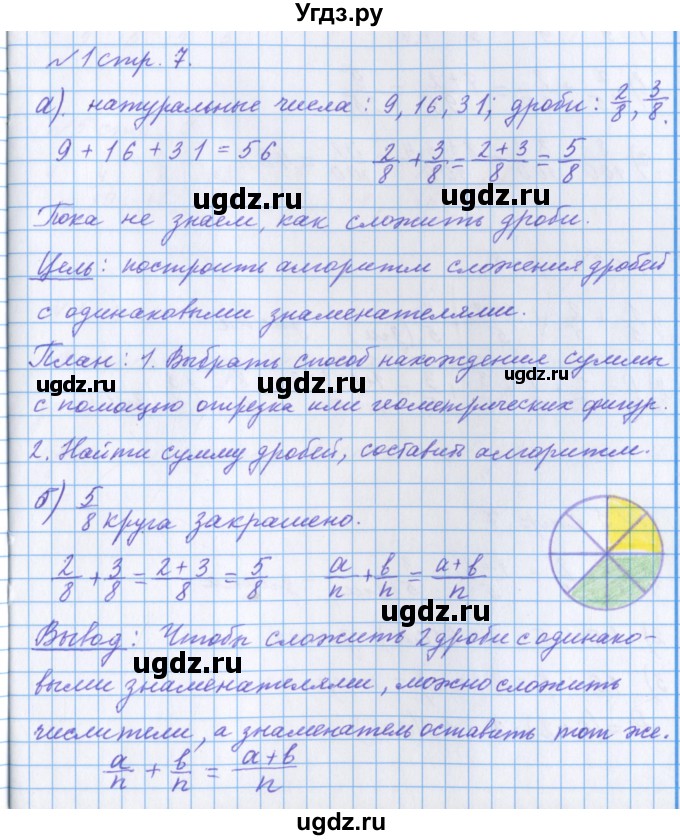 Угдз.ру
№1 стр. 7.
а). натуральные числа: 9, 16, 31; дроби: 2/8, 3/8.
9 + 16 + 31 = 56 2/8 + 3/8 = (2+3)/8 = 5/8
ugdz.ru ugdz.ru
Пока не знаем, как сложить дроби.
Цель: построить алгоритм сложения дробей
ugdz.ru
с одинаковыми знаменателями.
План: 1. Выбрать способ нахождения суммы
ugdz.ru ugdz.ru ugdz.ru
с помощью отрезка или геометрических фигур.
2. Найти сумму дробей, составить алгоритм.
ugdz.ru
б) 5/8 круга закрашено.
2/8 + 3/8 = (2+3)/8 = 5/8 а/n + в/n = (а+в)/n
ugdz.ru
Вывод: Чтобы сложить 2 дроби с одинако-
ugdz.ru
выми знаменателями, можно сложить
числители, а знаменатель оставить тот же.
ugdz.ru ugdz.ru
а/n + в/n = (а+в)/n
ugdz.ru